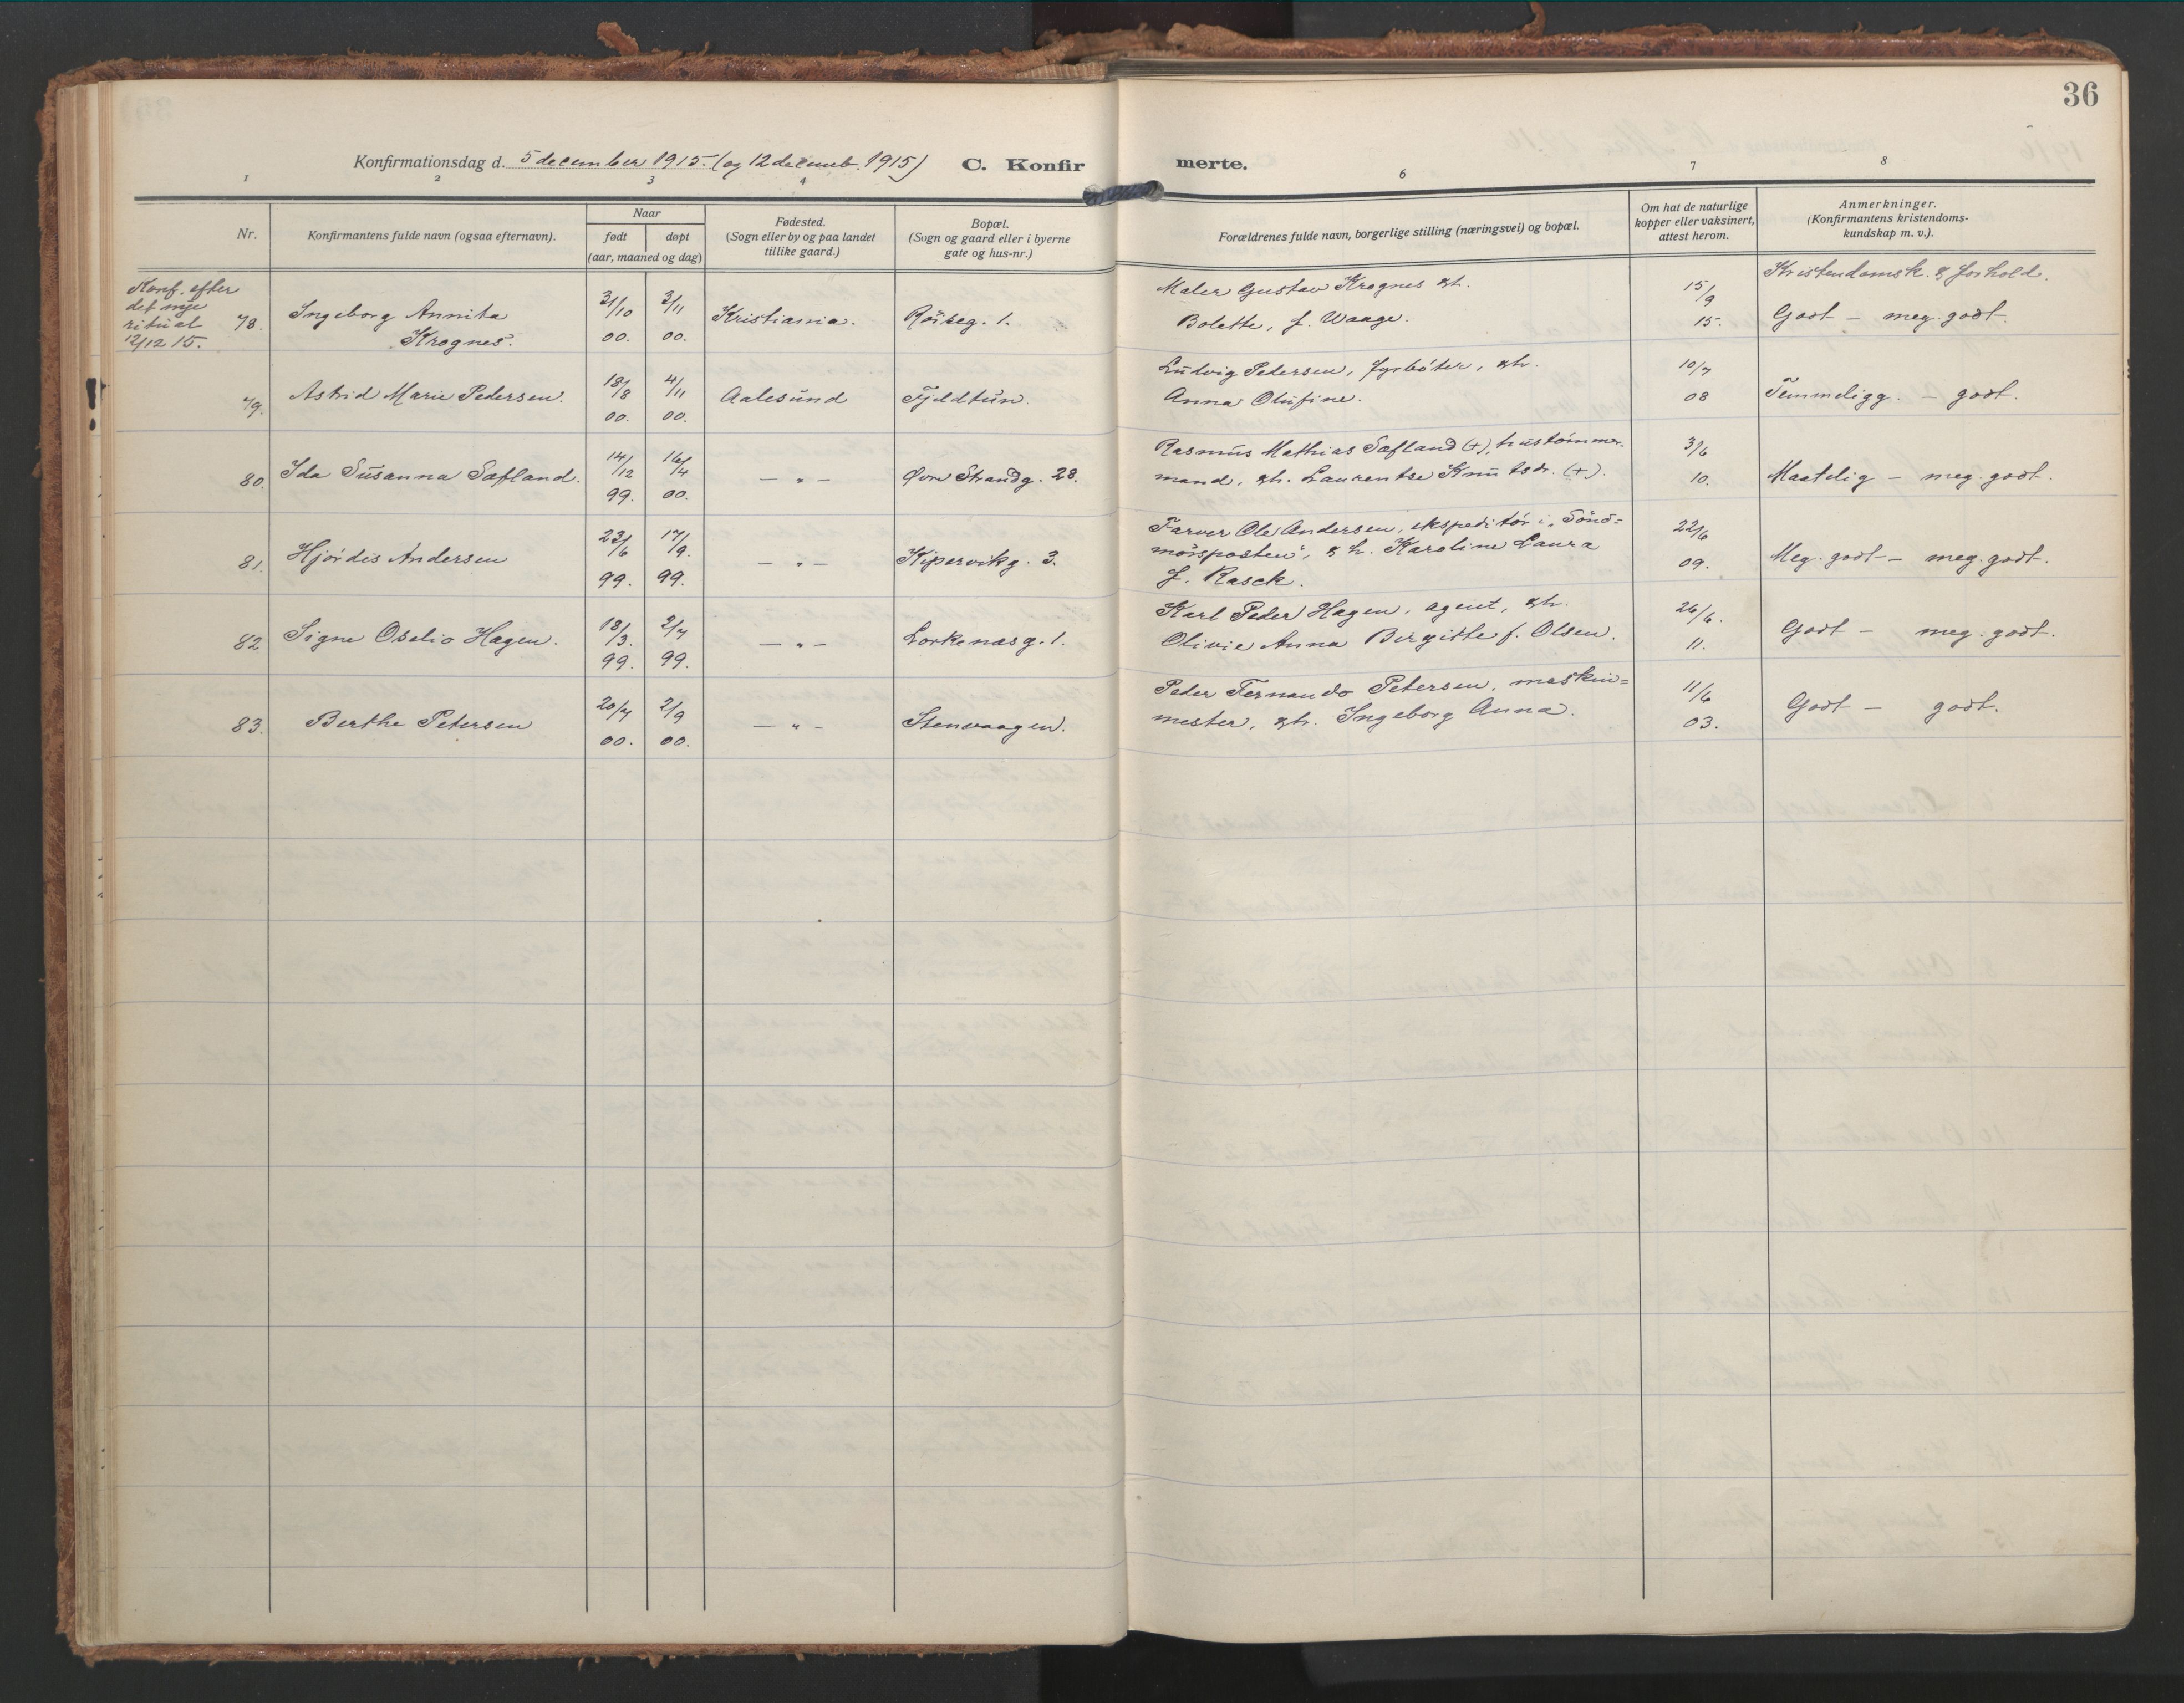 36
Konfirmationsdag d. 5 december 1915. (og 12 decemb. 1915) C. Konfirmerte.
1 2 3 4 6 7 8
Nr.
Konfirmantens fulde navn (ogsaa efternavn).
Naar
født døpt
(aar, maaned og dag)
Fødested.
(Sogn eller by og paa landet
tillike gaard.)
Bopæl.
(Sogn og gaard eller i byerne
gate og hus-nr.)
Forældrenes fulde navn, borgerlige stilling (næringsvei) og bopæl.
Om hat de naturlige
kopper eller vaksinert,
attest herom.
Anmerkninger.
(Konfirmantens kristendoms-
kundskap m. v.).
Kristendomsk. & forhold.
Konf. efter
det nye
ritual
12/12 15.
78. Ingeborg Annita
Krognes.
31/10 00. 3/11 00. Kristiania. Röiseg. 1.
Maler Gustav Krognes & h.
Bolette, f. Waage.
15/9 15. Godt – meg. godt.
79. Astrid Marie Pedersen. 18/8 00. 4/11 00. Aalesund Fjeldtun.
Ludvig Petersen, fyrböter, & h.
Anna Olufine.
10/7 08 Temmeligg. – godt.
80. Ida Susanna Safland. 14/12 99. 16/4 00. — " — Øvre Strandg. 28.
Rasmus Mathias Safland (+), hustömmer-
mand, & h. Laurentse Knutsdr. (+).
3/6 10. Maatelig – meg. godt.
81. Hjördis Andersen 23/6 99. 17/9. 99. — " — Kipervikg. 3.
Farver Ole Andersen, ekspeditör i „Sönd=
mörsposten“, & h. Karoline Laura
f. Rasck.
22/6 09. Meg. godt – meg. godt.
82 Signe Oselio Hagen. 18/3. 99. 2/7 99. — " — Lorkenæsg. 1.
Karl Peder Hagen, agent, & h.
Olivie Anna Birgitte f. Olsen.
26/6. 11. Godt – meg. godt.
83. Berthe Petersen 20/7 00. 2/9 00. — " — Stenvaagen.
Peder Fernando Petersen, maskin=
mester, & h. Ingeborg Anna.
11/6 03. Godt – godt.